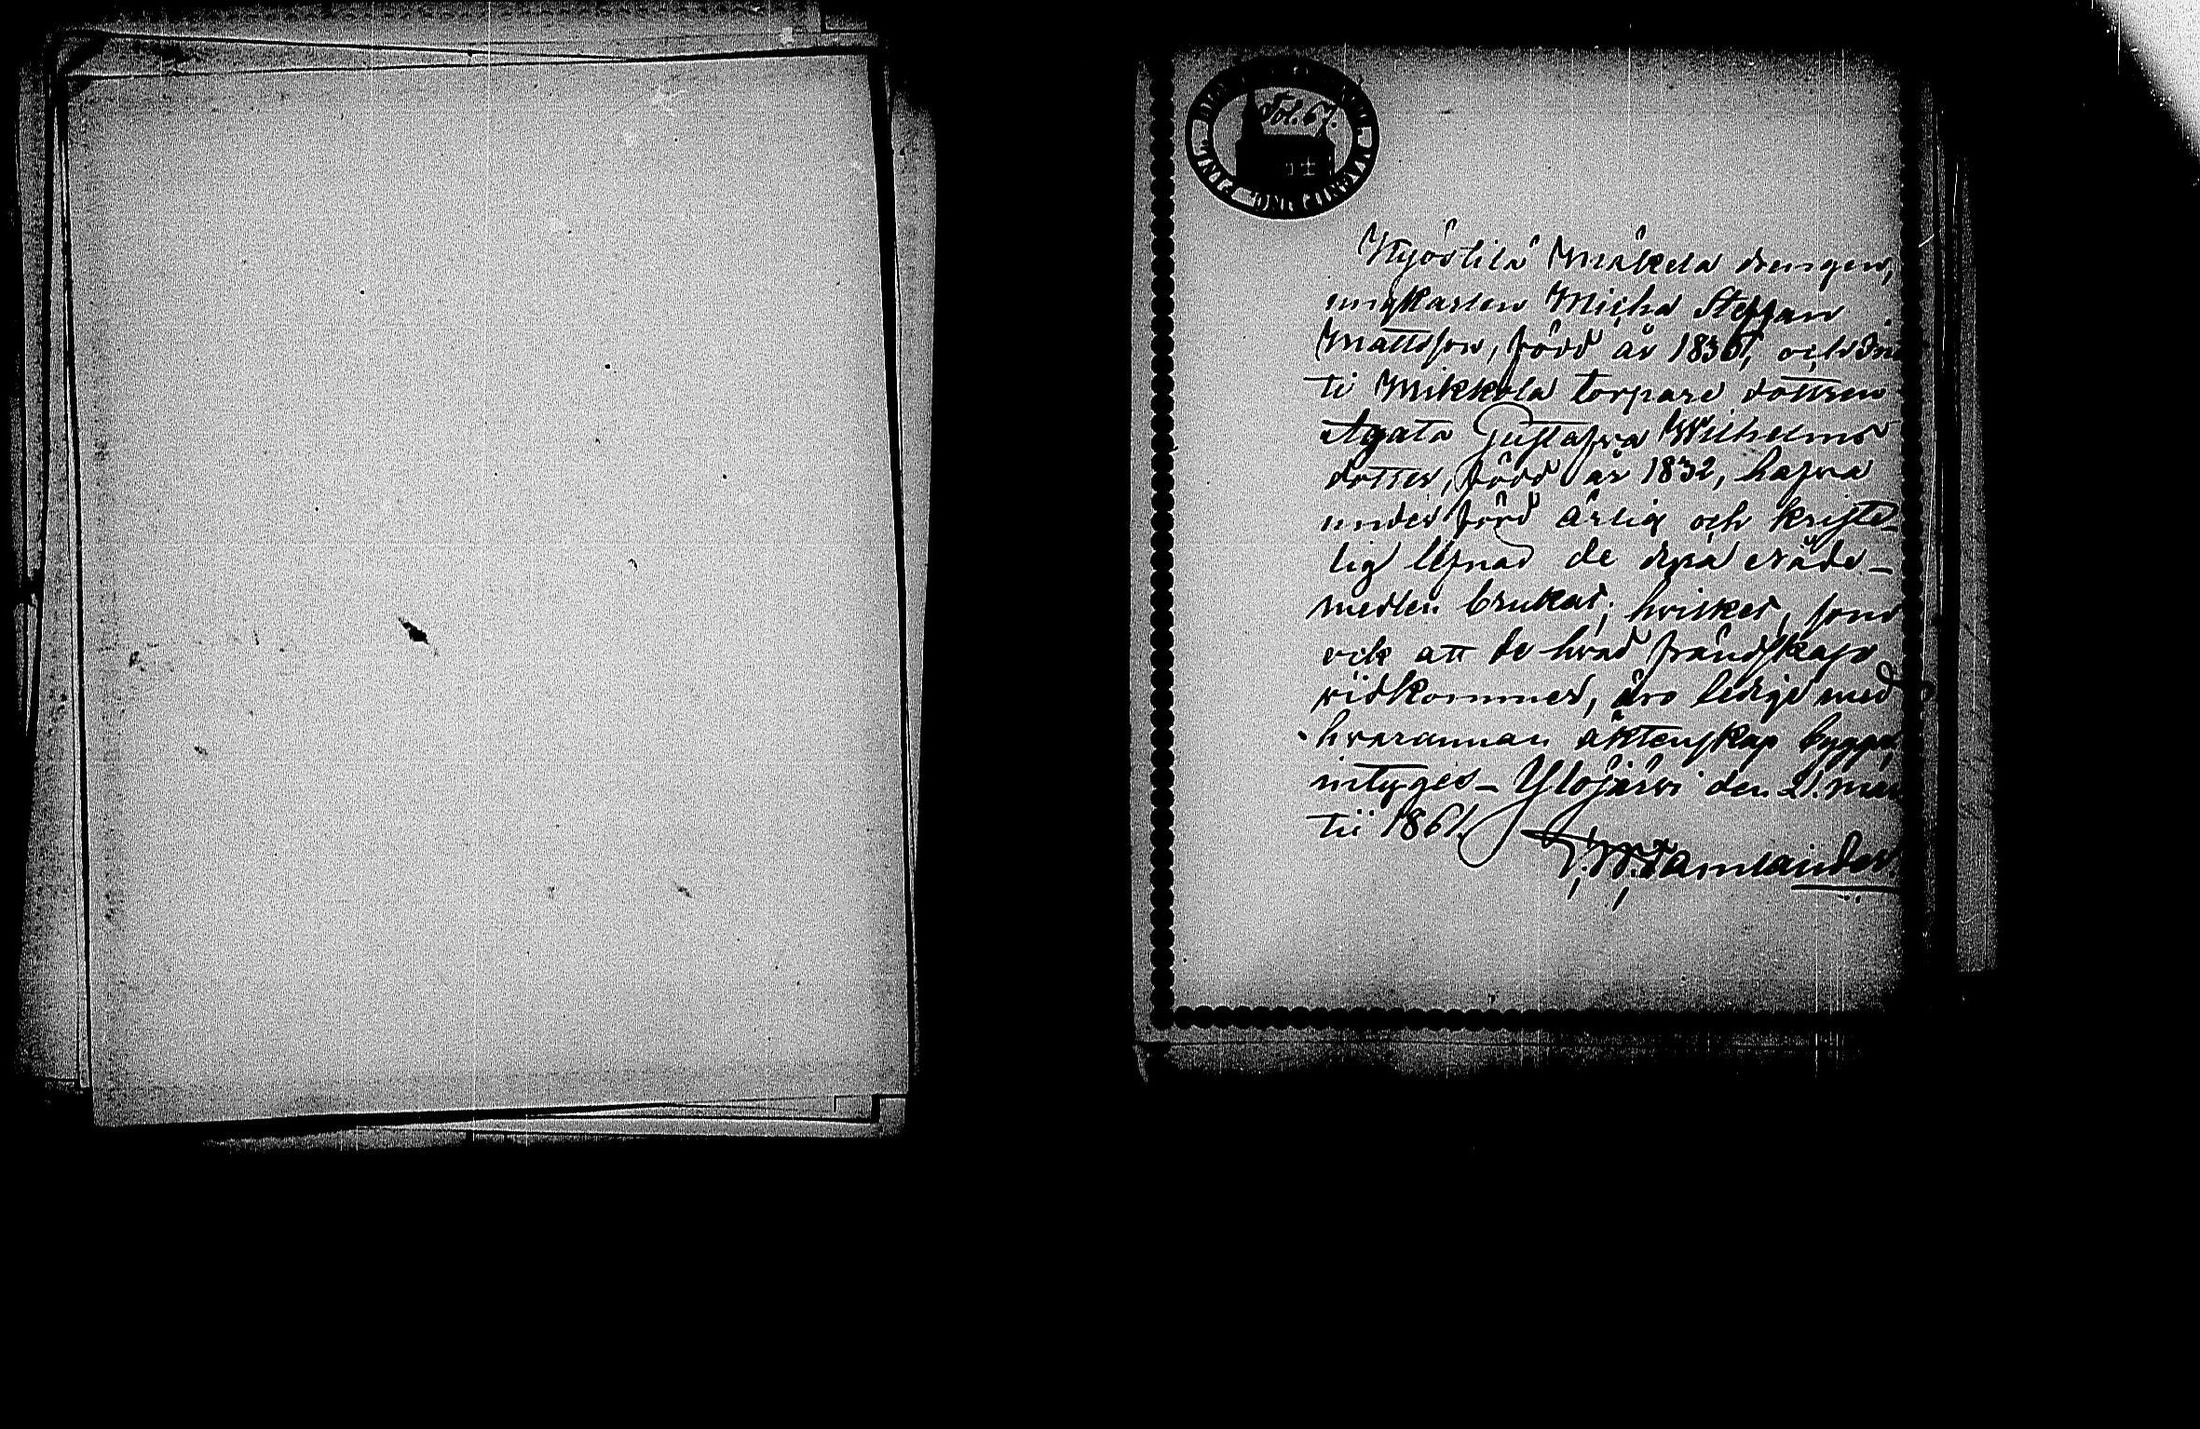 Fol. 67.
Kyöstilä Mäkelä drengen,
ungkarlen Micha Steffan
Mattsson, född år 1836, och
ti Mikkola torpare dottren
Agata Gustafva Wilhelms
dotter, född år 1832, hafva
under förd ärlig och kriste-
lig lefnad de dyra nåde-
medlen brukat; hvilket, som
ock att de hvad frändskap
vidkommer, äro ledige med
hvarannan äktenskap bygga,
intyges – Ylöjärvi den 21. mar
tii 1861.